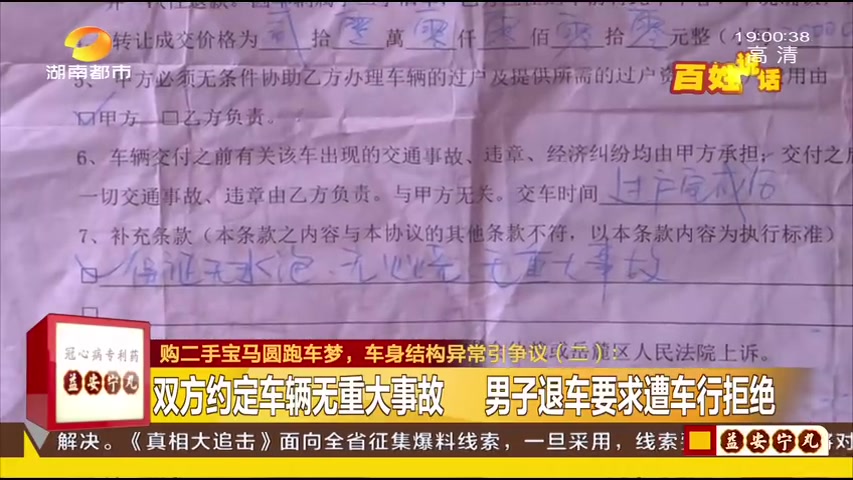 19:00:38
高清
湖南都市
百姓说话
转让成交价格为 贰 拾 零 萬 零 仟 零 佰 零 拾 零 元整（
5、甲方必须无条件协助乙方办理车辆的过户及提供所需的过户资 用由
☑甲方 □乙方负责。
6、车辆交付之前有关该车出现的交通事故、违章、经济纠纷均由甲方承担；交付之后
一切交通事故、违章由乙方负责。与甲方无关。交车时间 过户完成后
7、补充条款（本条款之内容与本协议的其他条款不符，以本条款内容为执行标准）
保证无水泡 无火烧 无重大事故
岳麓区人民法院上诉。
冠心病专利药
益安宁丸
购二手宝马圆跑车梦，车身结构异常引争议（二）：
双方约定车辆无重大事故 男子退车要求遭车行拒绝
解决。《真相大追击》面向全省征集爆料线索，一旦采用，线索
益安宁丸
对